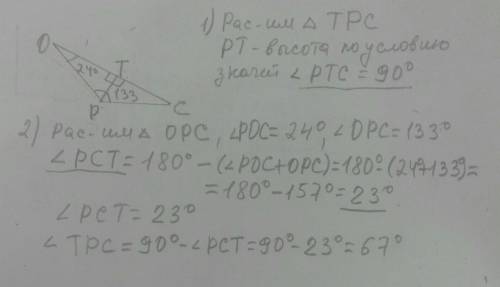 1) Рас-им △ TPC
PT - высота по условию
значит ∠PTC = 90°
O
24°
T
133
P
C
2) Рас-им △ OPC, ∠POC = 24°, ∠OPC = 133°
∠PCT = 180° - (∠POC + OPC) = 180° - (24+133) =
= 180° - 157° = 23°
∠PCT = 23°
∠TPC = 90° - ∠PCT = 90° - 23° = 67°